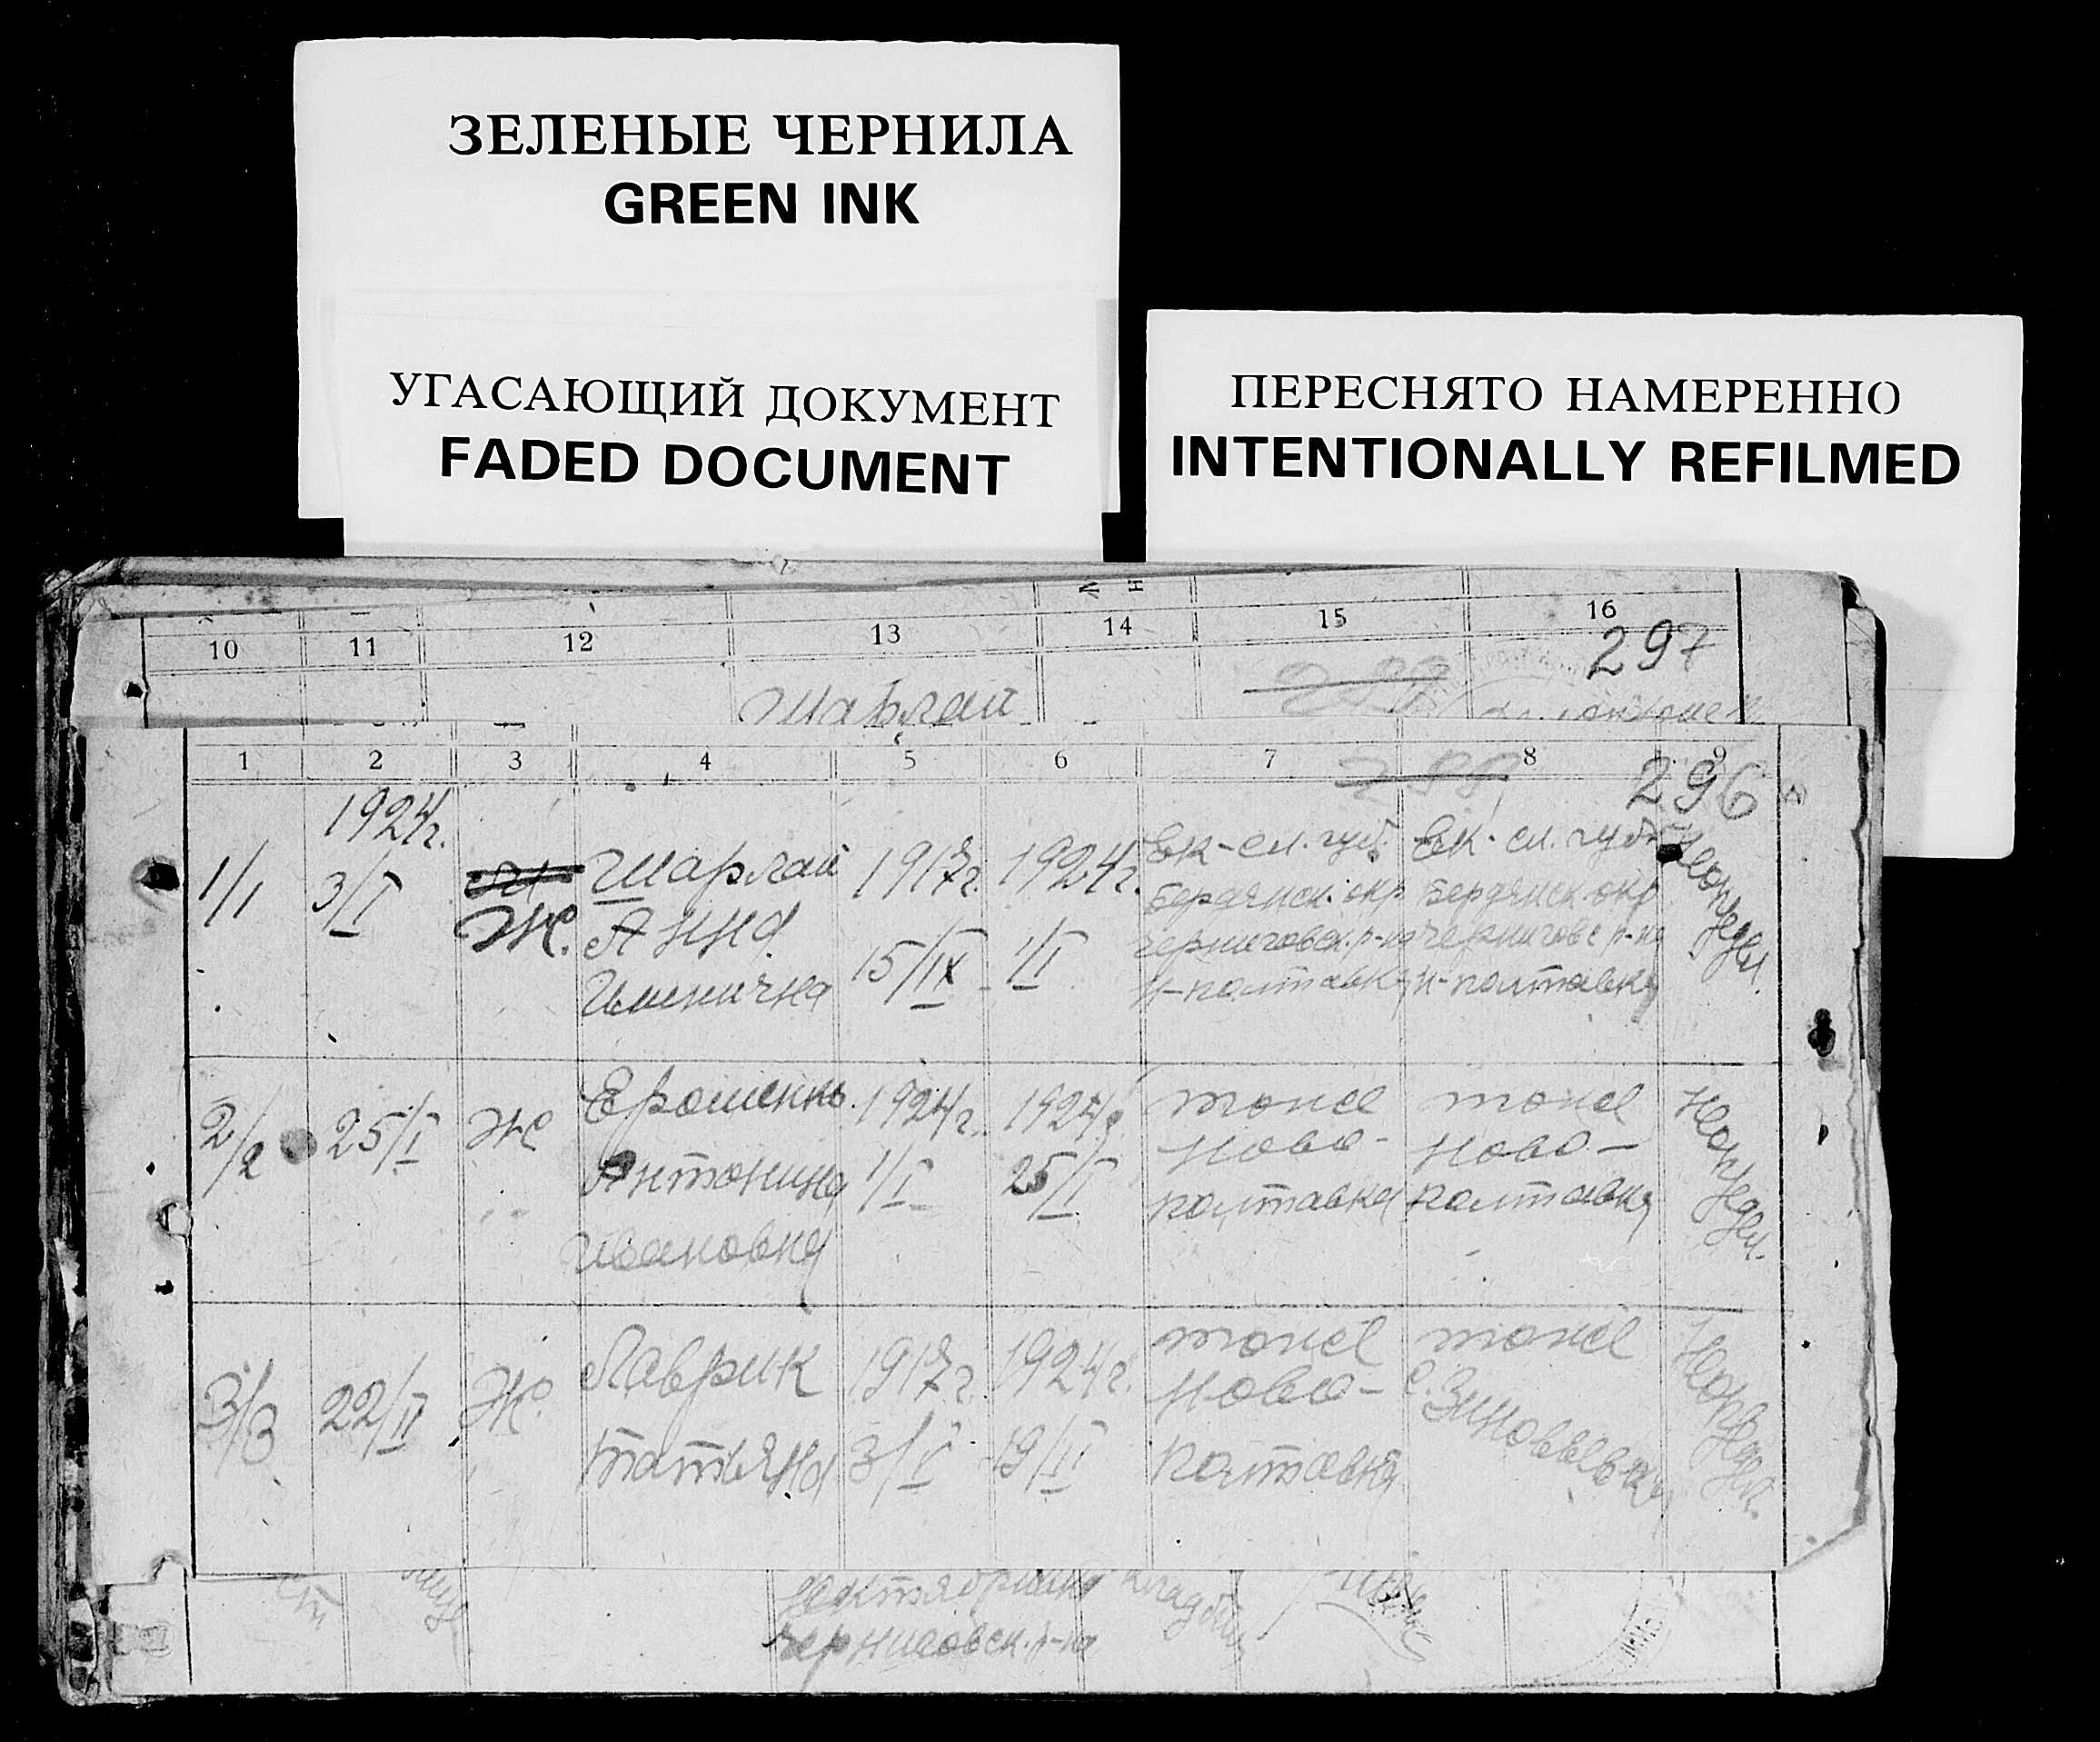 ЗЕЛЕНЫЕ ЧЕРНИЛА
GREEN INK
УГАСАЮЩИЙ ДОКУМЕНТ
FADED DOCUMENT
ПЕРЕСНЯТО НАМЕРЕННО
INTENTIONALLY REFILMED
10 11 12 13 14 15 16
297
Шарлай
1 2 3 4 5 6 7 8 9
296
1924г.
1/1 3/I Ж. Шарлай Анна 1917г. 15/IX 1924г. 1/I
Ек-сл. губ. Ек-сл. губ.
Бердянск. окр. Бердянск. окр
Черниговск. р-на Черниговс р-на
Н-Полтавка Н-Полтавка
2/2 25/I Ж Ерошенко. 1924г. 1924г. тоже тоже
Антонина 1/I 25/I Ново- Ново-
Ивановна Полтавка Полтавка
3/3 22/II Ж. Лаврик 1917г. 1924г. тоже тоже
Татьяна 3/V 19/II Ново- с. Зиновьевка
Полтавка
Черниговск. р-на